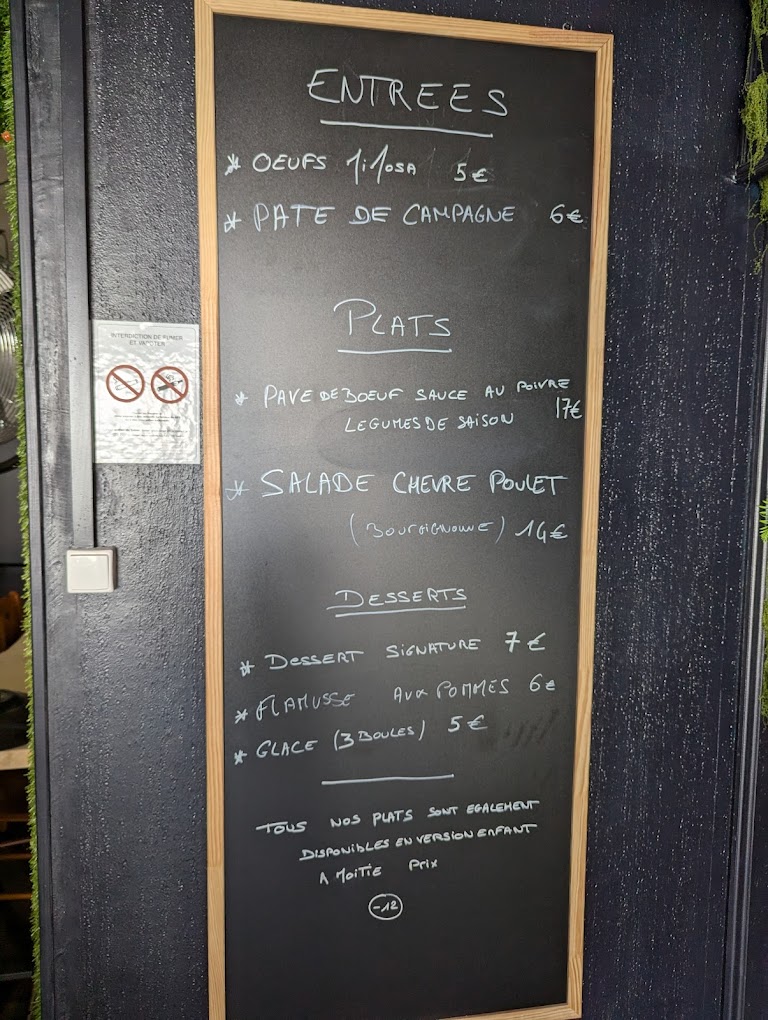 ENTREES
* OEUFS MiMOSA 5€
* PATE DE CAMPAGNE 6€
PLATS
* PAVE DE BOEUF SAUCE AU POIVRE
LEGUMES DE SAISON 17€
* SALADE CHEVRE POULET
(BOURGIGNONNE) 14€
DESSERTS
* DESSERT SIGNATURE 7€
* FLAMUSSE AUX POMMES 6€
* GLACE (3 BOULES) 5€
TOUS NOS PLATS SONT EGALEMENT
DISPONIBLES EN VERSION ENFANT
A MOITIE PRIX
-12
INTERDICTION DE FUMER
ET VAPOTER